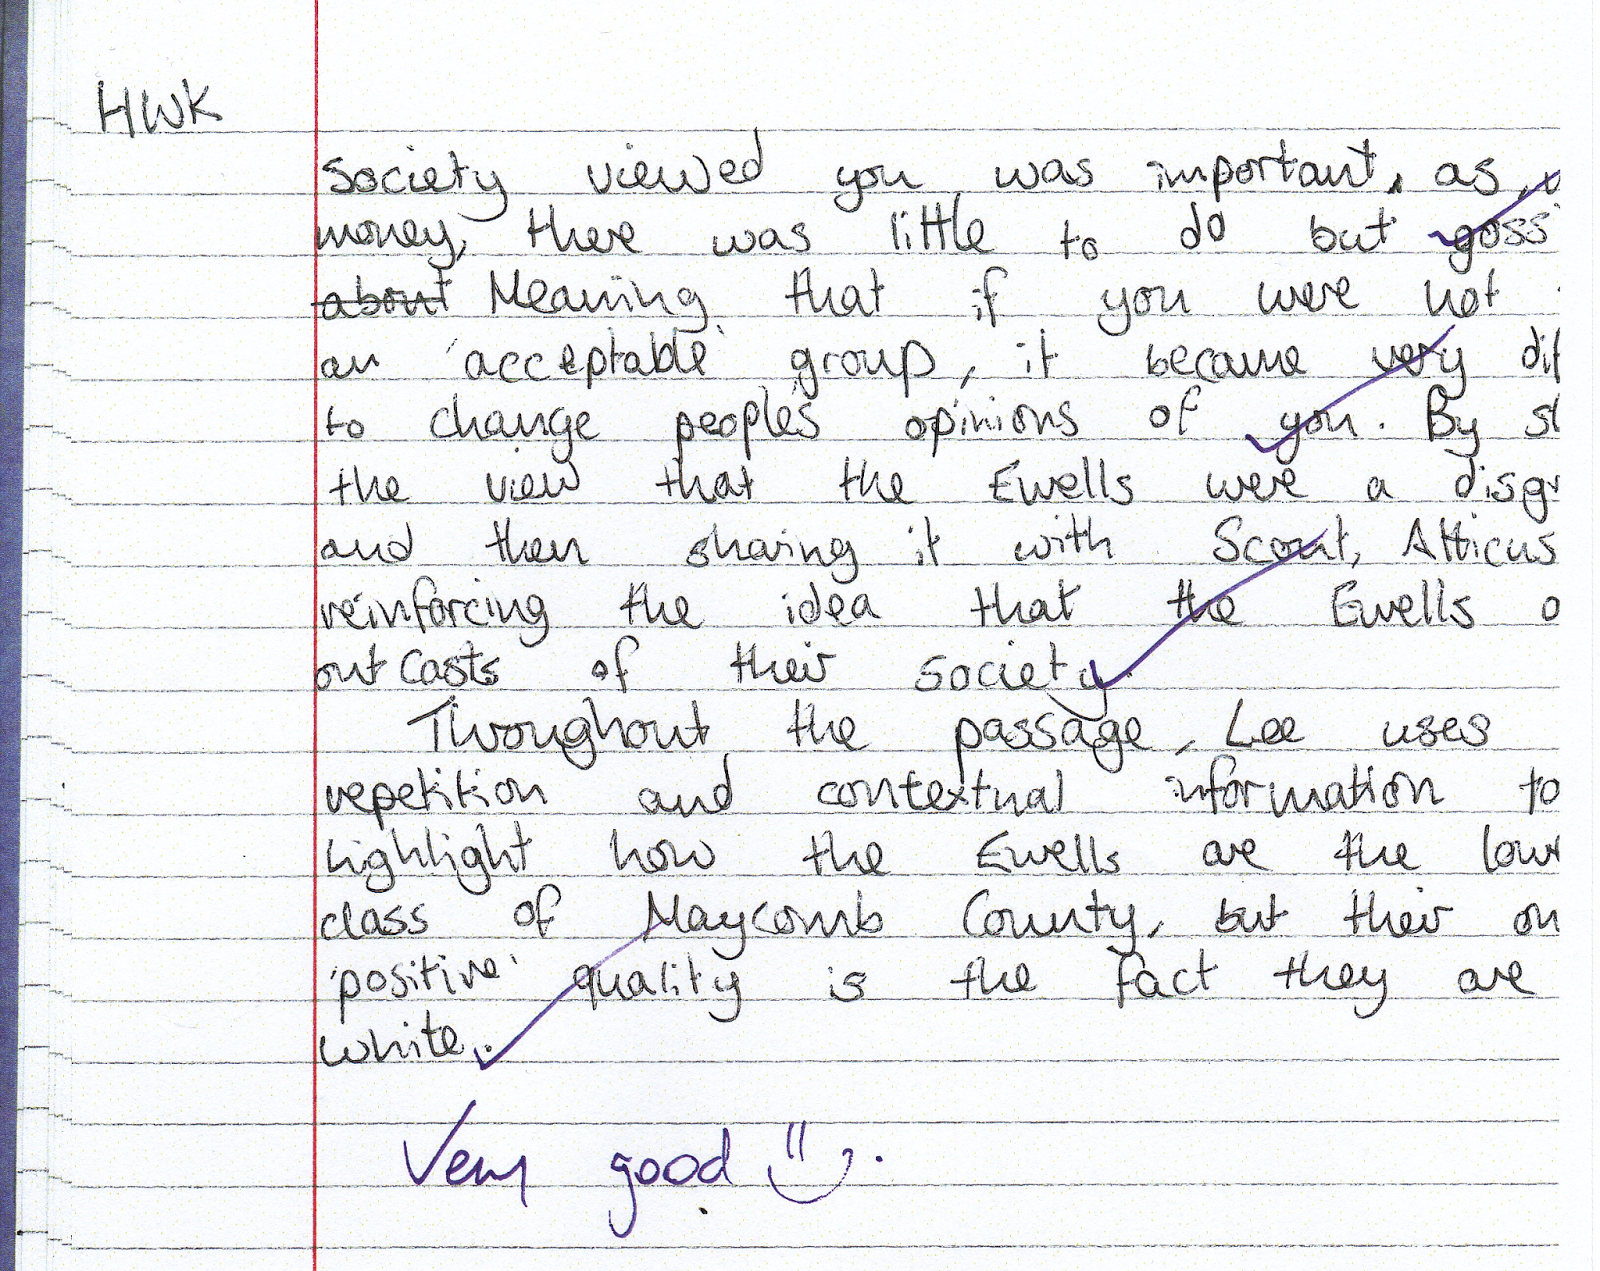 HWK
society viewed you was important, as,
money, there was little to do but goss
about Meaning that if you were not
an 'acceptable' group, it became very dif
to change people's opinions of you. By
the view that the Ewells were a disgr
and then sharing it with Scout, Atticus
reinforcing the idea that the Ewells
outcasts of their society.
Throughout the passage, Lee uses
repetition and contextual information to
highlight how the Ewells are the low
class of Maycomb County, but their on
'positive' quality is the fact they are
white.
Very good